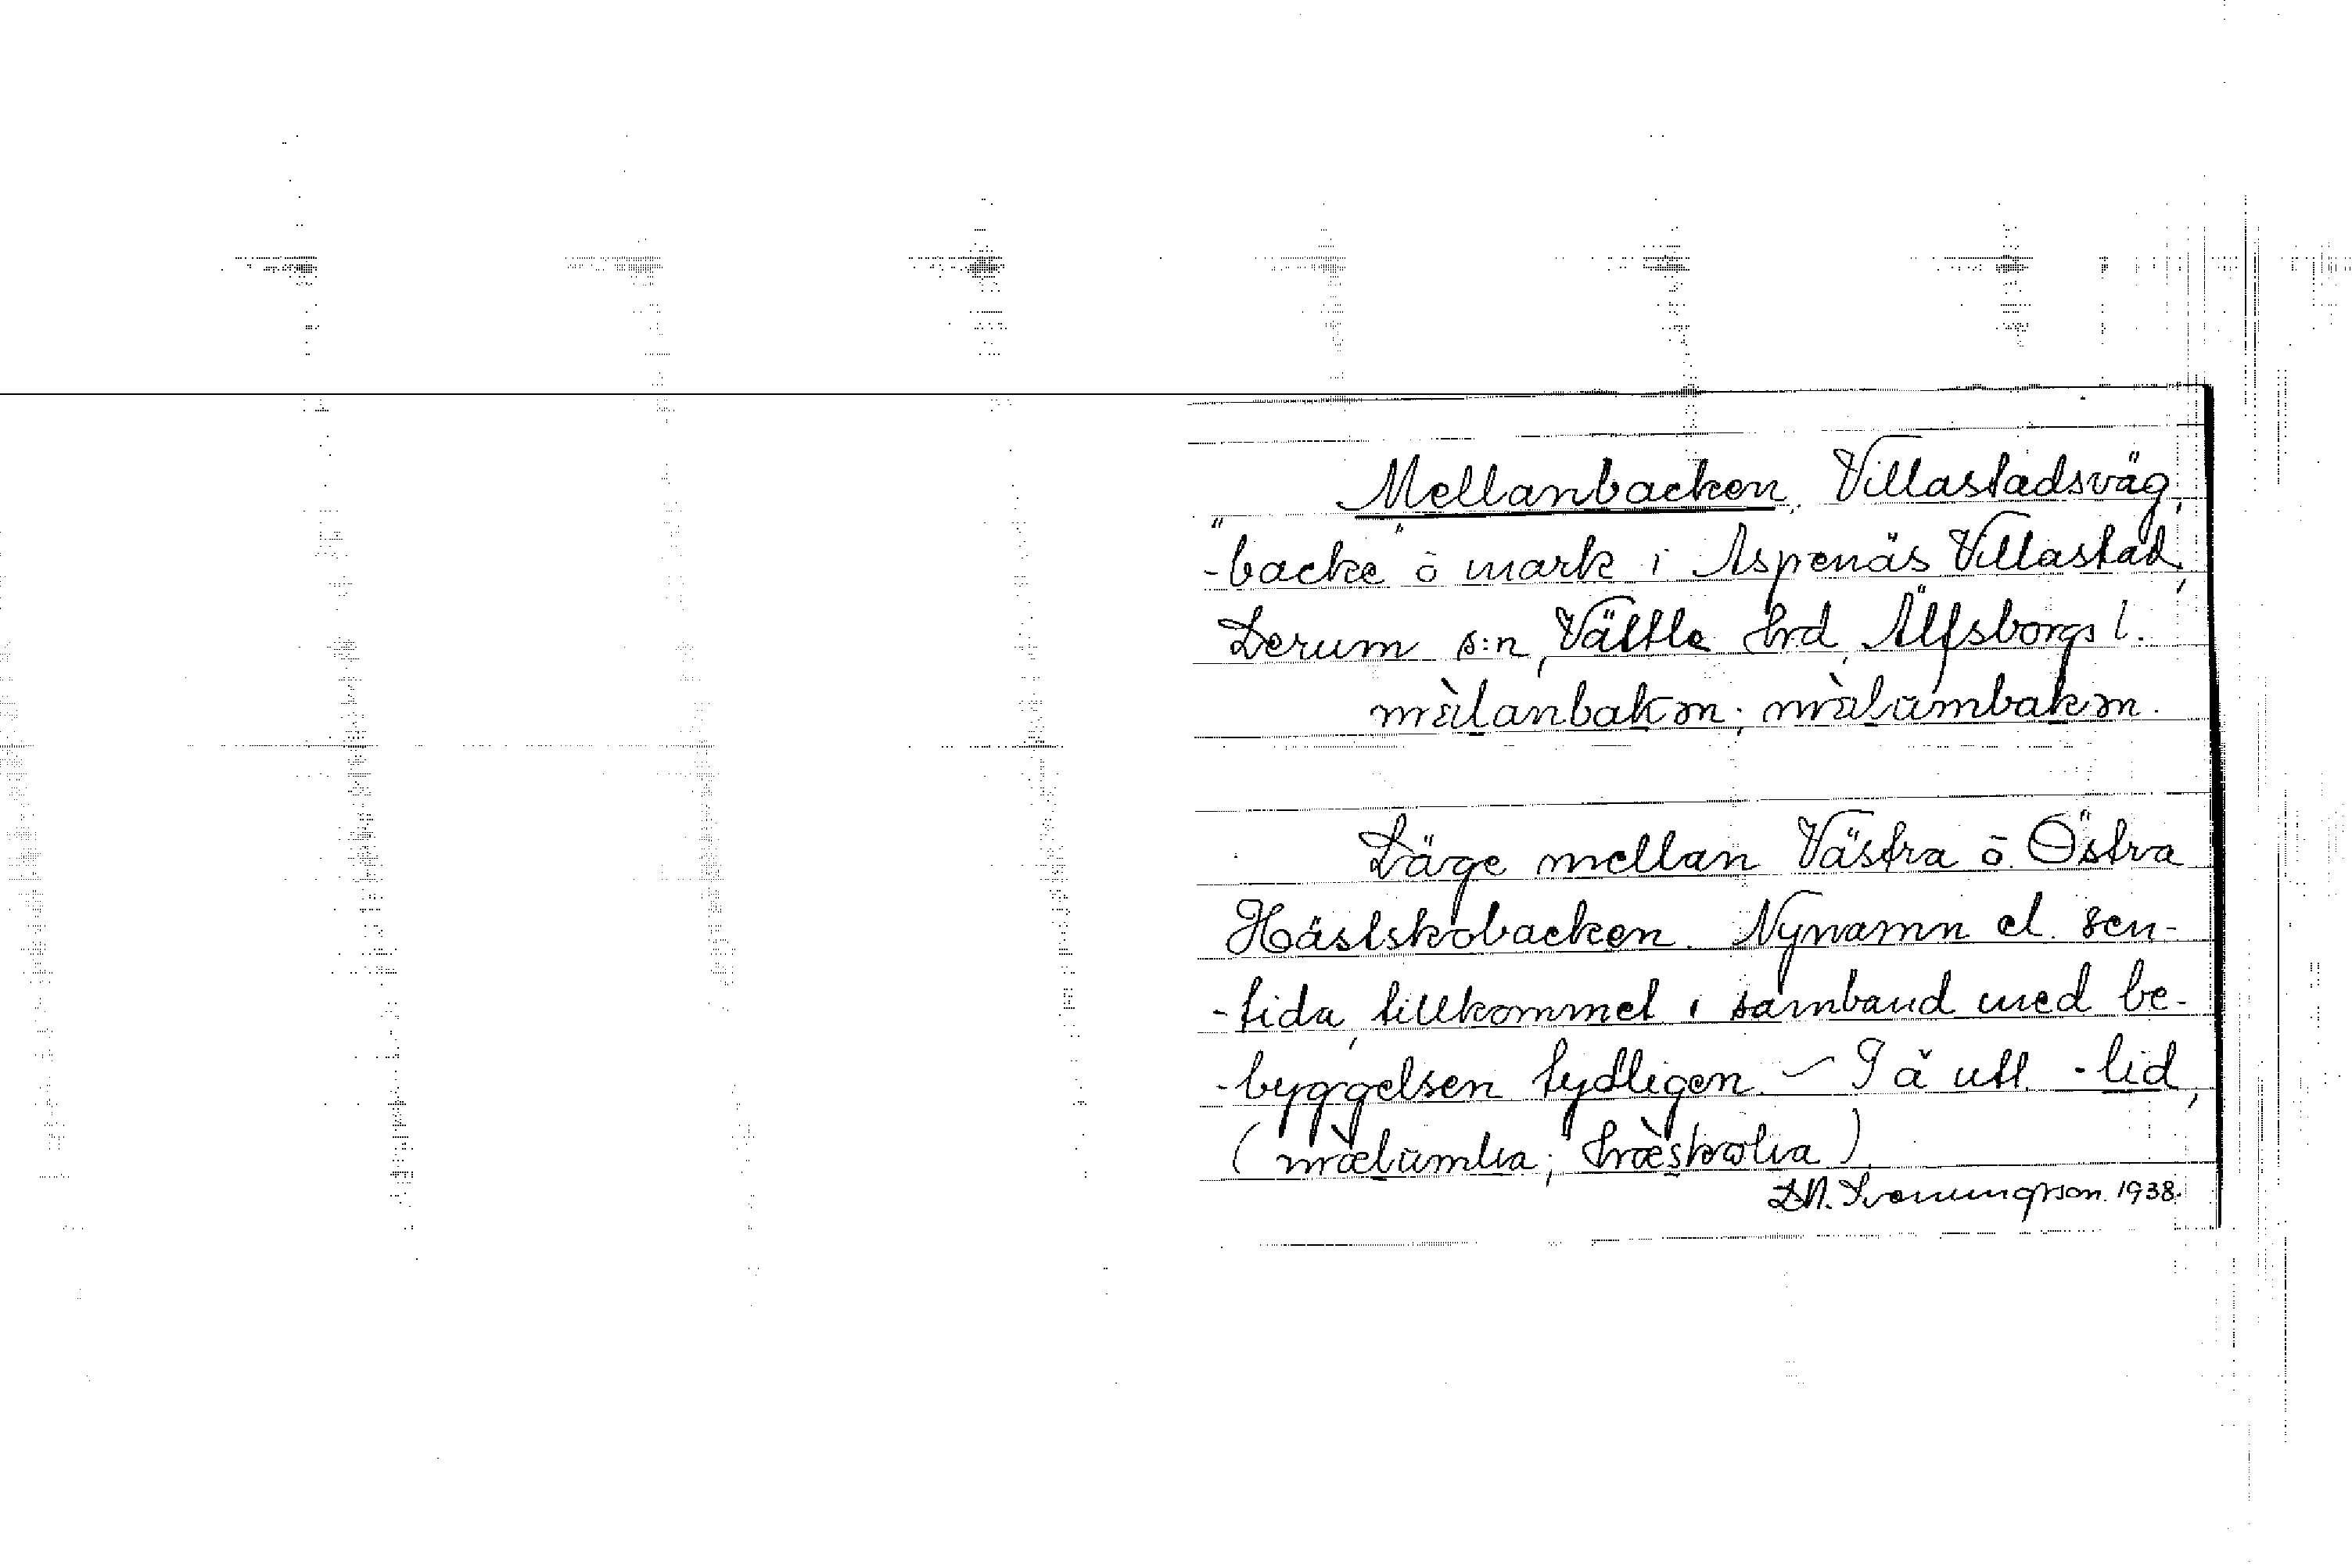 Mellanbacken, Villastadsväg,
-"backe" ō mark i Aspenäs Villastad,
Lerum s:n, Vättle hrd, Älfsborgs l.
Läge mellan Västra ō Östra
Hästskobacken. Nynamn el. sen-
-tida, tillkommet i samband med be-
-byggelsen tydligen. – I ä utt. -lid,
D.N. Svenungsson. 1938.